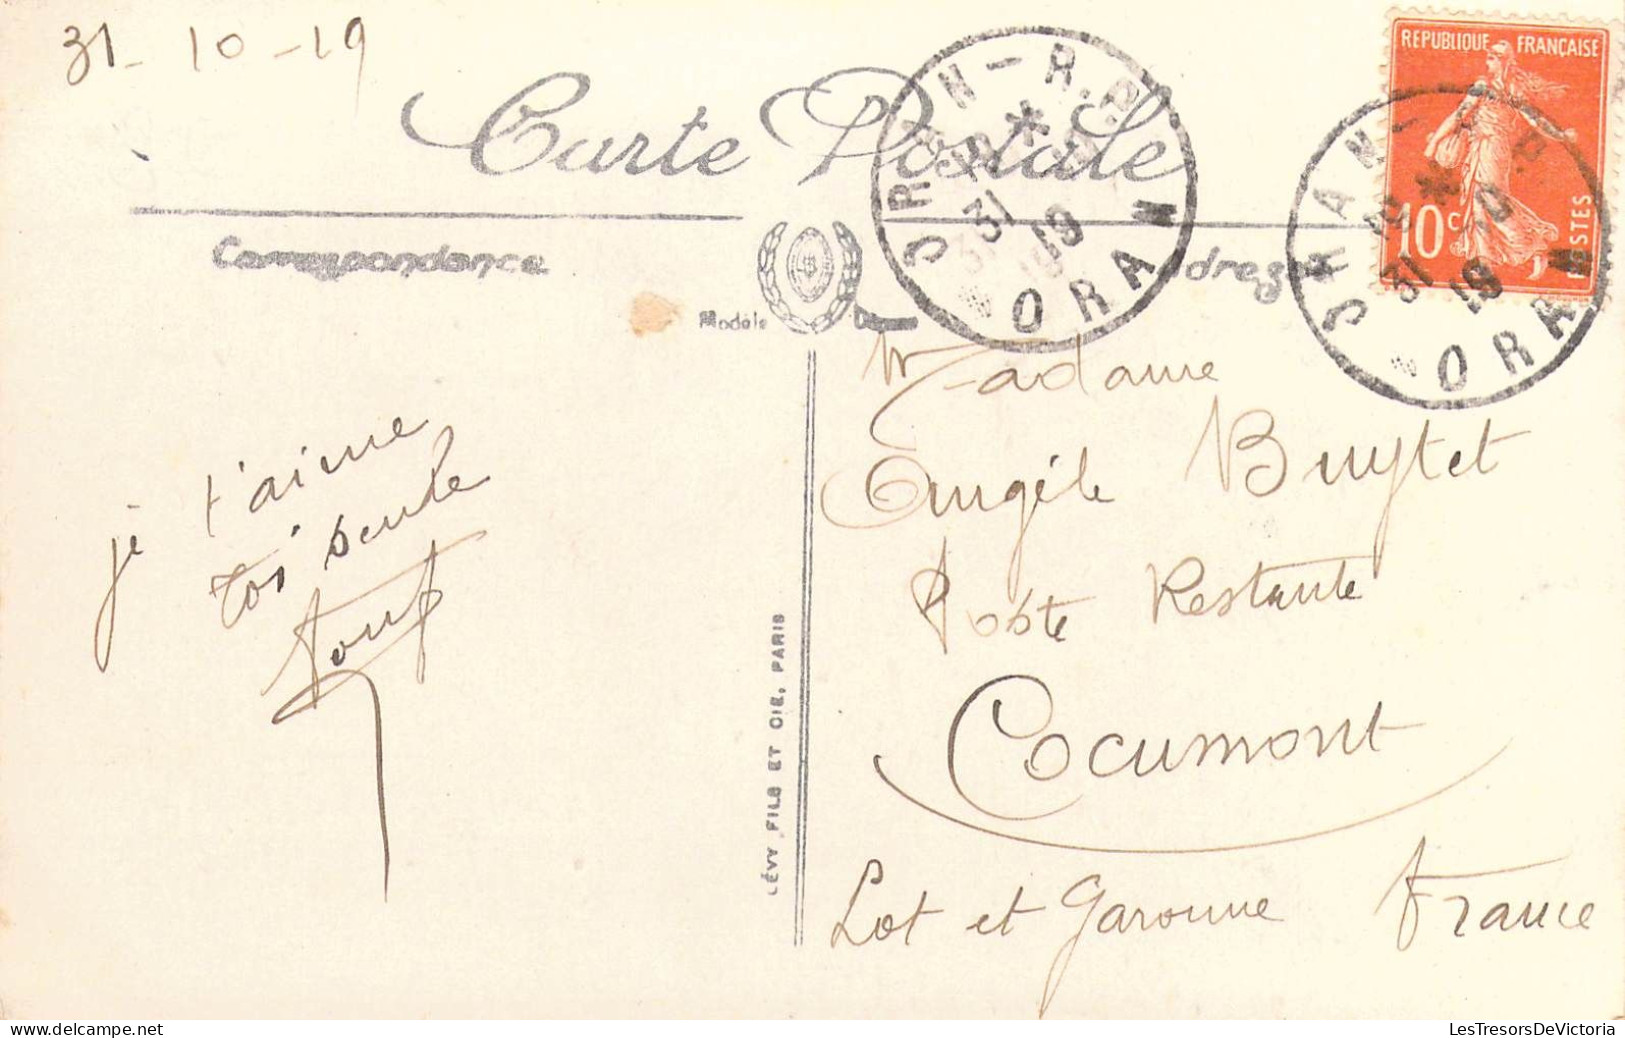 31-10-19
Carte Postale
Correspondance
Adresse
Modèle
ORAN-R.P.
31
10
19
ORAN
REPUBLIQUE FRANÇAISE
10c
POSTES
ORAN-R.P.
31
10
19
ORAN
je t'aime
toi seule
LÉVY FILS ET CIE, PARIS
Madame
Angèle Buytet
Poste Restante
Cocumont
Lot et Garonne France
LesTresorsDeVictoria
www.delcampe.net